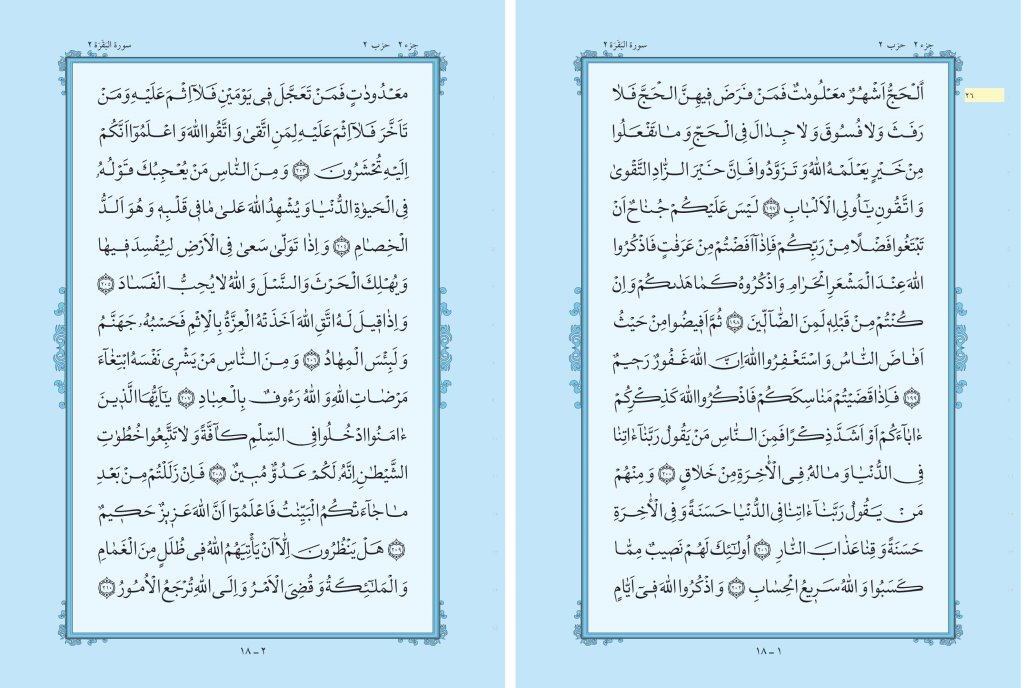 جزء ٢ حزب ٢ سورة البَقَرَة ٢
٢٦
اَلْحَجُّ اَشْهُرٌ مَعْلُومٰتٌ فَمَنْ فَرَضَ فِيهِنَّ الْحَجَّ فَلا
رَفَثَ وَلا فُسُوقَ وَلا جِدالَ فِى الْحَجِّ وَ ما تَفْعَلُوا
مِنْ خَيْرٍ يَعْلَمْهُ اللهُ وَ تَزَوَّدُوا فَاِنَّ خَيْرَ الزّادِ التَّقْوىٰ
وَ اتَّقُونِ يٰاُولِى الْاَلْبابِ ﴿١٩٧﴾ لَيْسَ عَلَيْكُمْ جُناحٌ اَنْ
تَبْتَغُوا فَضْلًا مِنْ رَبِّكُمْ فَاِذآ اَفَضْتُمْ مِنْ عَرَفٰتٍ فَاذْكُرُوا
اللهَ عِنْدَ الْمَشْعَرِ الْحَرامِ وَ اذْكُرُوهُ كَما هَدٰىكُمْ وَ اِنْ
كُنْتُمْ مِنْ قَبْلِهٖ لَمِنَ الضّآلّينَ ﴿١٩٨﴾ ثُمَّ اَفيضُوا مِنْ حَيْثُ
اَفاضَ النّاسُ وَ اسْتَغْفِرُوا اللهَ اِنَّ اللهَ غَفُورٌ رَحيمٌ
﴿١٩٩﴾ فَاِذا قَضَيْتُمْ مَناسِكَكُمْ فَاذْكُرُوا اللهَ كَذِكْرِكُمْ
ءابآءَكُمْ اَوْ اَشَدَّ ذِكْرًا فَمِنَ النّاسِ مَنْ يَقُولُ رَبَّنآ ءاتِنا
فِى الدُّنْيا وَ ما لَهُ فِى الْاٰخِرَةِ مِنْ خَلاقٍ ﴿٢٠٠﴾ وَ مِنْهُمْ
مَنْ يَقُولُ رَبَّنآ ءاتِنا فِى الدُّنْيا حَسَنَةً وَ فِى الْاٰخِرَةِ
حَسَنَةً وَ قِنا عَذابَ النّارِ ﴿٢٠١﴾ اُولٰئِكَ لَهُمْ نَصيبٌ مِمّا
كَسَبُوا وَ اللهُ سَريعُ الْحِسابِ ﴿٢٠٢﴾ وَ اذْكُرُوا اللهَ فى اَيّامٍ
١ – ١٨
جزء ٢ حزب ٢ سورة البَقَرَة ٢
مَعْدُودٰتٍ فَمَنْ تَعَجَّلَ فى يَوْمَيْنِ فَلآ اِثْمَ عَلَيْهِ وَ مَنْ
تَاَخَّرَ فَلآ اِثْمَ عَلَيْهِ لِمَنِ اتَّقىٰ وَ اتَّقُوا اللهَ وَ اعْلَمُوٓا اَنَّكُمْ
اِلَيْهِ تُحْشَرُونَ ﴿٢٠٣﴾ وَ مِنَ النّاسِ مَنْ يُعْجِبُكَ قَوْلُهُ
فِى الْحَيٰوةِ الدُّنْيا وَ يُشْهِدُ اللهَ عَلىٰ ما فى قَلْبِهٖ وَ هُوَ اَلَدُّ
الْخِصامِ ﴿٢٠٤﴾ وَ اِذا تَوَلّىٰ سَعىٰ فِى الْاَرْضِ لِيُفْسِدَ فيها
وَ يُهْلِكَ الْحَرْثَ وَ النَّسْلَ وَ اللهُ لا يُحِبُّ الْفَسادَ ﴿٢٠٥﴾
وَ اِذا قيلَ لَهُ اتَّقِ اللهَ اَخَذَتْهُ الْعِزَّةُ بِالْاِثْمِ فَحَسْبُهُ جَهَنَّمُ
وَ لَبِئْسَ الْمِهادُ ﴿٢٠٦﴾ وَ مِنَ النّاسِ مَنْ يَشْرى نَفْسَهُ ابْتِغآءَ
مَرْضاتِ اللهِ وَ اللهُ رَءُوفٌ بِالْعِبادِ ﴿٢٠٧﴾ يٰٓاَيُّهَا الَّذينَ
ءامَنُوا ادْخُلُوا فِى السِّلْمِ كآفَّةً وَ لا تَتَّبِعُوا خُطُوٰتِ
الشَّيْطٰنِ اِنَّهُ لَكُمْ عَدُوٌّ مُبينٌ ﴿٢٠٨﴾ فَاِنْ زَلَلْتُمْ مِنْ بَعْدِ
ما جآءَتْكُمُ الْبَيِّنٰتُ فَاعْلَمُوٓا اَنَّ اللهَ عَزيزٌ حَكيمٌ
﴿٢٠٩﴾ هَلْ يَنْظُرُونَ اِلّآ اَنْ يَأْتِيَهُمُ اللهُ فى ظُلَلٍ مِنَ الْغَمامِ
وَ الْمَلٰٓئِكَةُ وَ قُضِىَ الْاَمْرُ وَ اِلَى اللهِ تُرْجَعُ الْاُمُورُ ﴿٢١٠﴾
٢ – ١٨